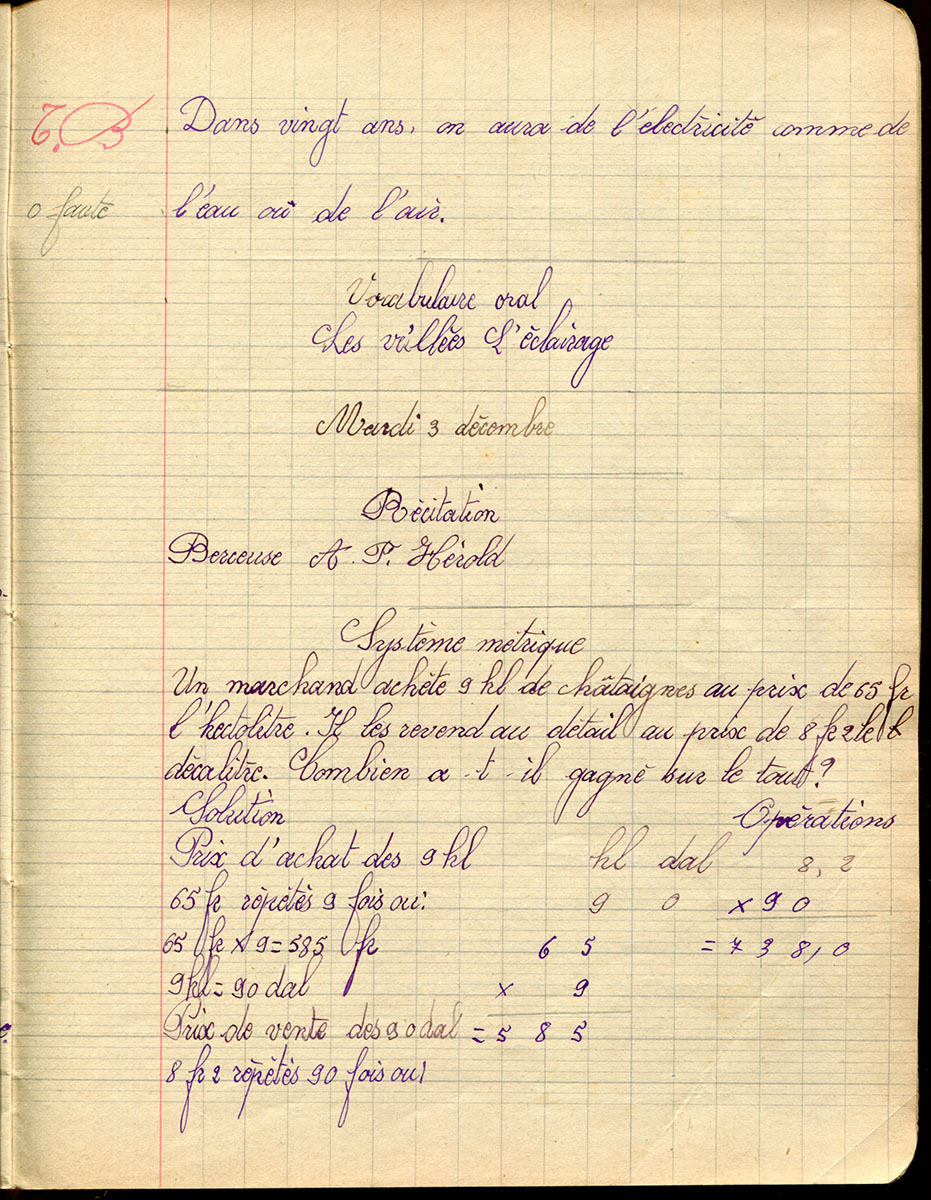 T.B Dans vingt ans, on aura de l'électricité comme de
0 faute l'eau où de l'air.
Vocabulaire oral
Les veillées L'éclairage
Mardi 3 décembre
Récitation
Berceuse A. F. Hérold
Système métrique
Un marchand achète 9 hl de châtaignes au prix de 65 fr
l'hectolitre. Il les revend au détail au prix de 8 fr 2 le
décalitre. Combien a-t-il gagné sur le tout?
Solution Opérations
Prix d'achat des 9 hl hl dal 8,2
65 fr répétés 9 fois ou: 9 0 × 90
65 fr × 9 = 585 fr 65 = 738,0
9 hl = 90 dal × 9
Prix de vente des 90 dal = 585
8 fr 2 répétés 90 fois ou: